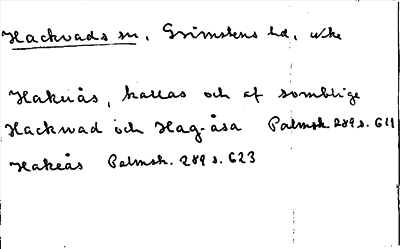 Hackvads sn, Grimstens hd, Nke
Hakuås, kallas och af somblige
Hackwad och Hag-åsa Palmsk. 289 s. 611
Hakeås Palmsk. 289 s. 623